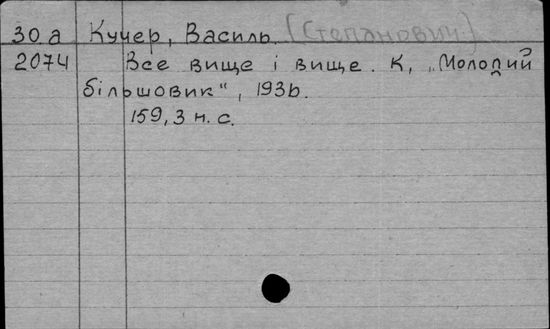 30 а Кучер, Василь. (Степанович)
2074 Все вище і вище. К, „Молодий
більшовик“, 1936.
159, 3 н. с.